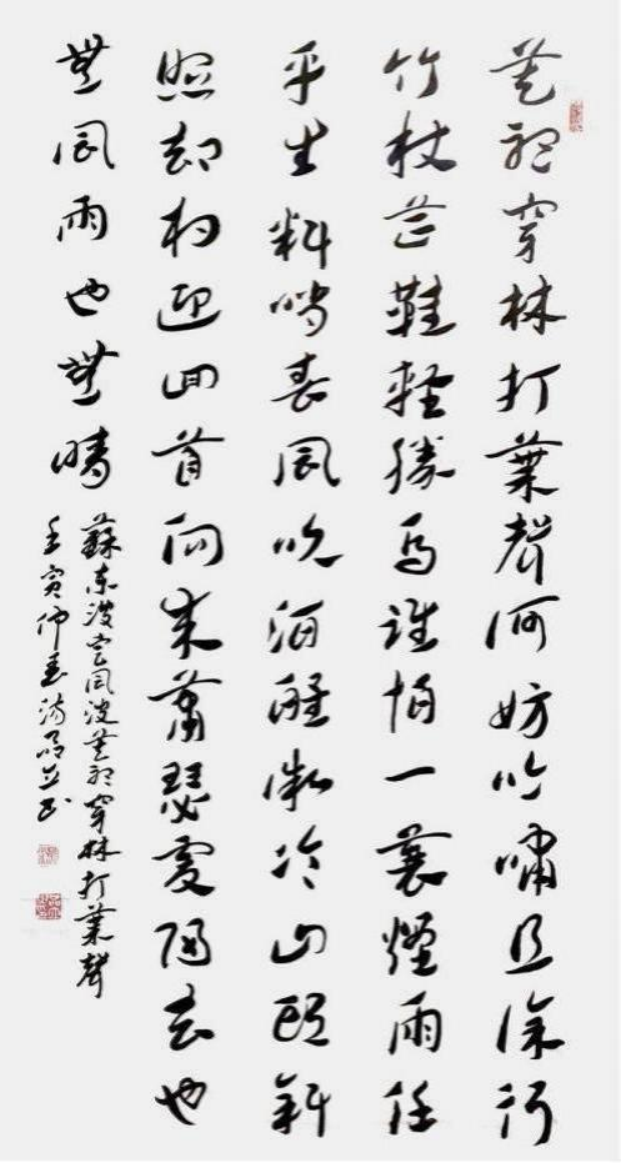 莫聽穿林打葉聲何妨吟嘯且徐行
竹杖芒鞋輕勝馬誰怕一蓑煙雨任
平生料峭春風吹酒醒微冷山頭斜
照却相迎回首向來蕭瑟處歸去也
無風雨也無晴
蘇東坡定風波莫聽穿林打葉聲
壬寅仲春